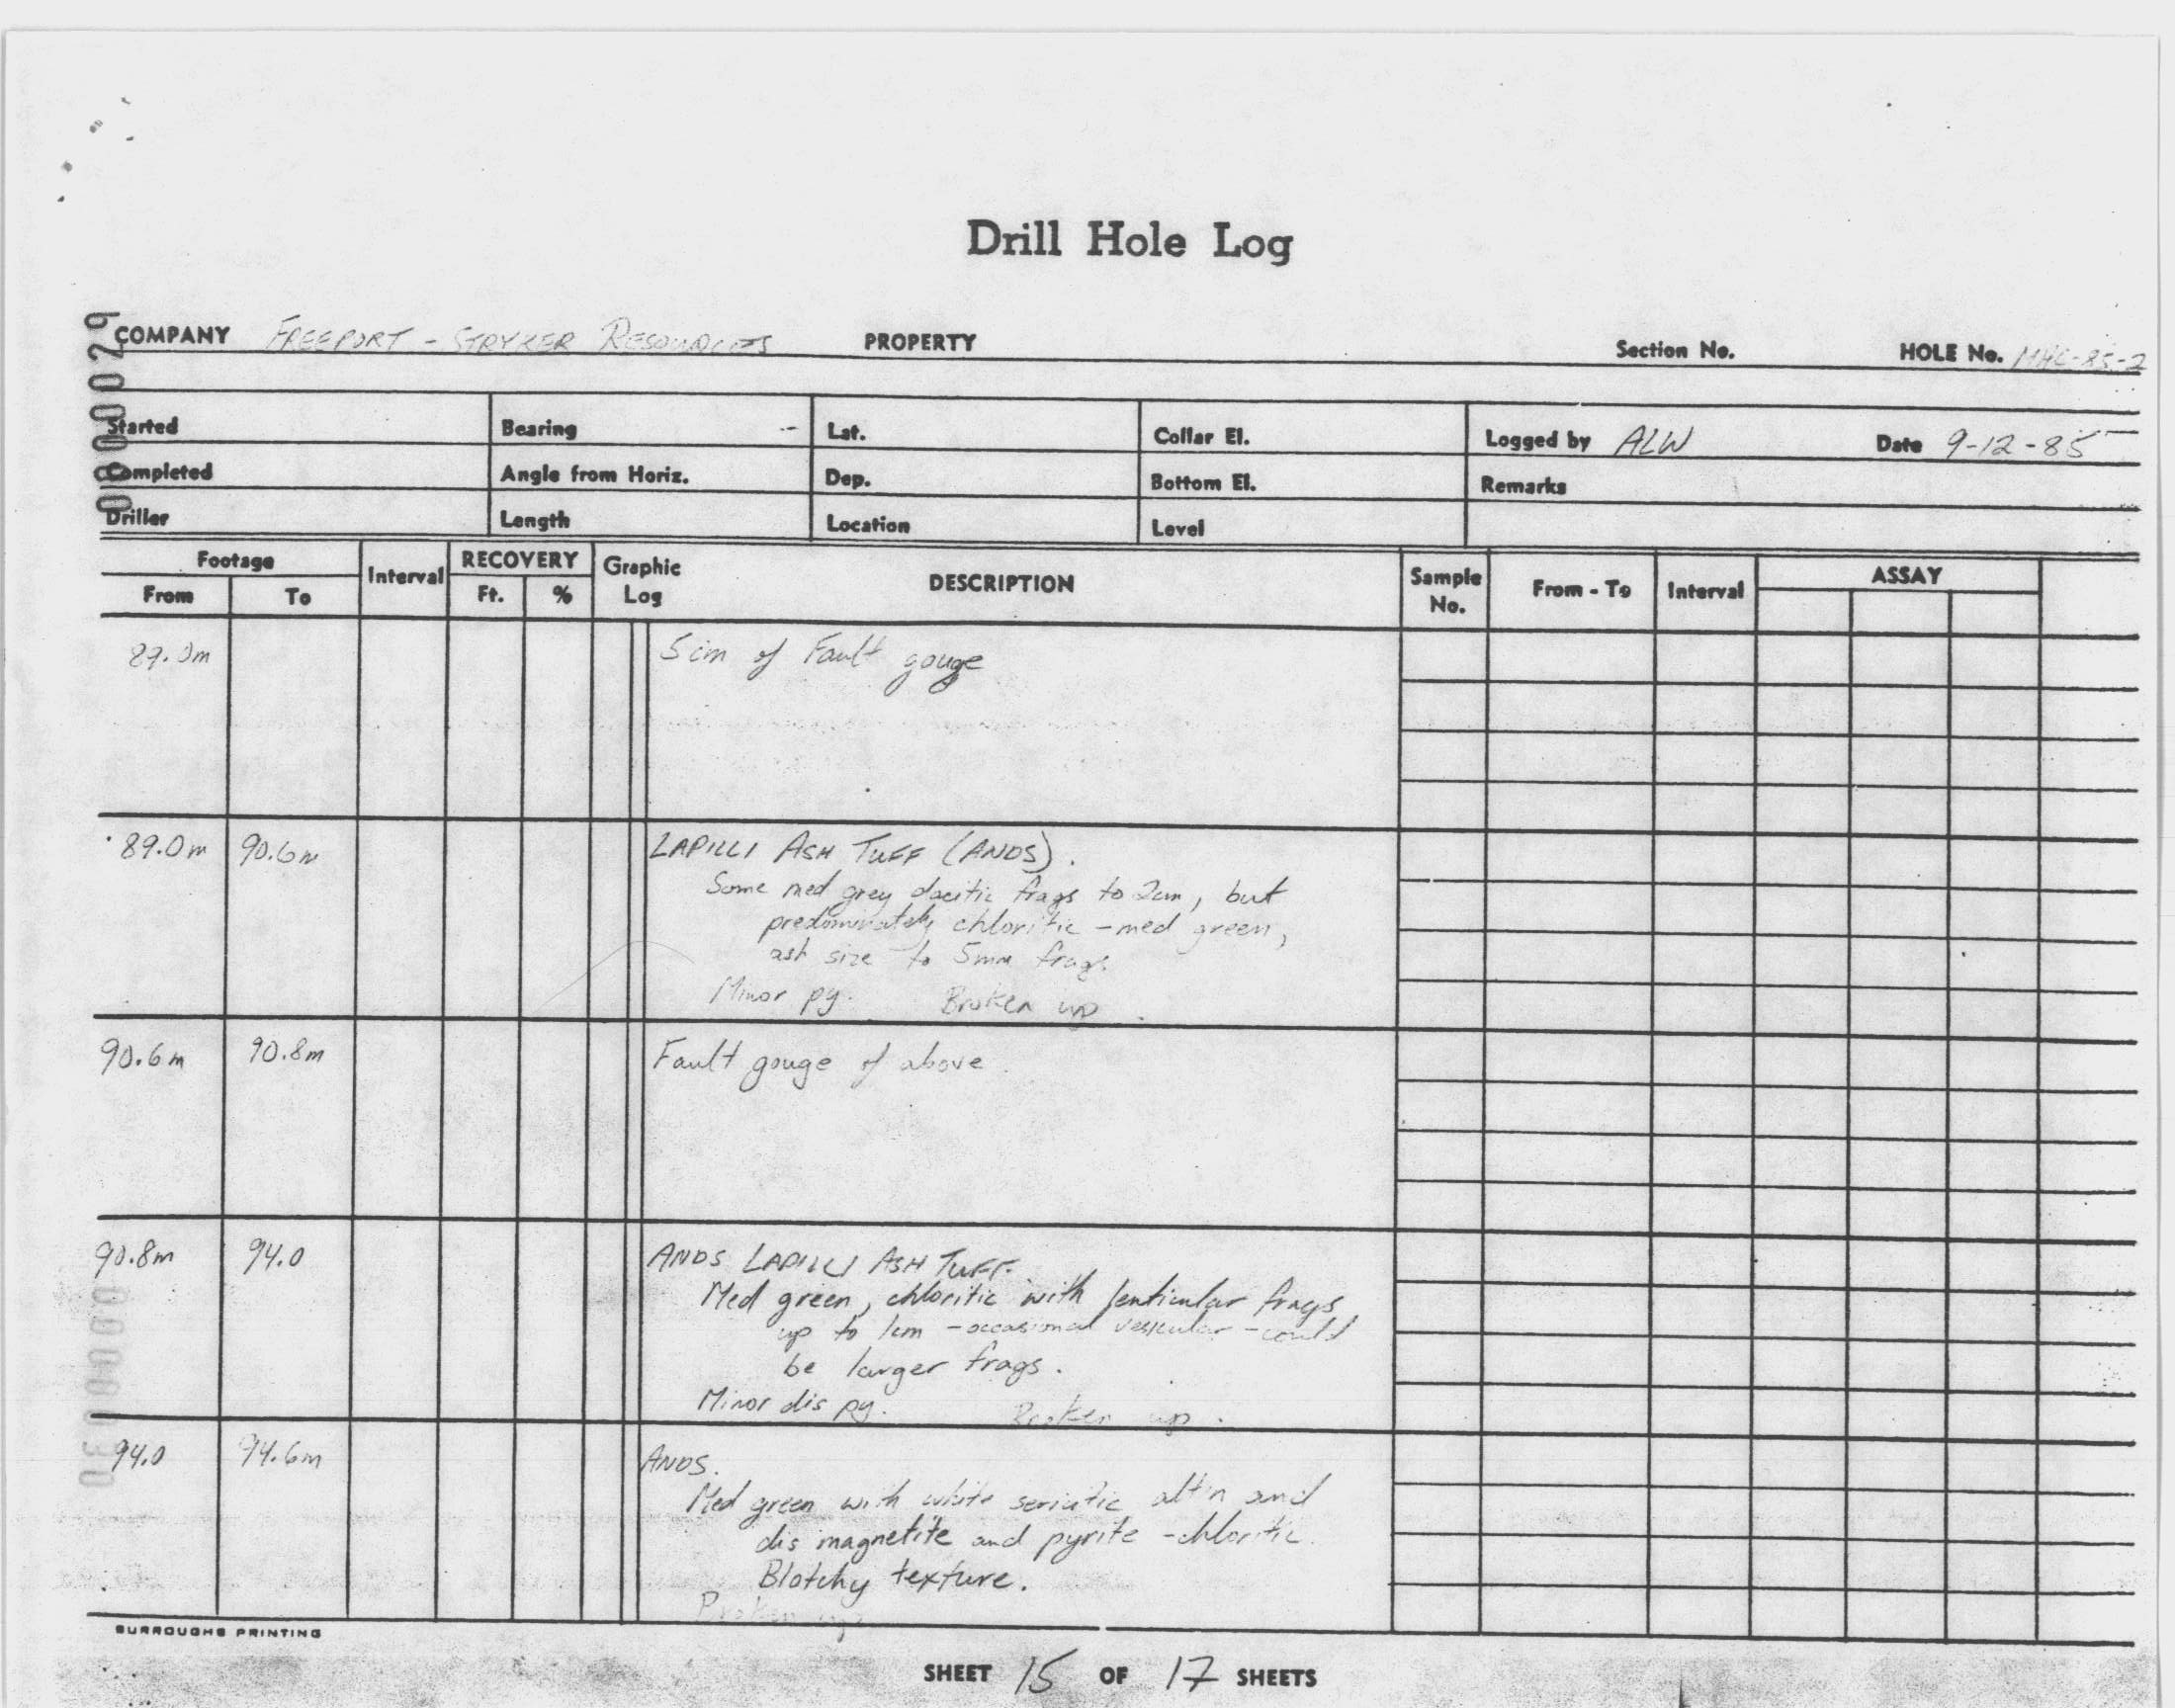 Drill Hole Log
0000029
COMPANY FREEPORT - STRYKER RESOURCES PROPERTY Section No. HOLE No. MHC-85-2
Started Bearing Lat. Collar El. Logged by ALW Date 9-12-85
Completed Angle from Horiz. Dep. Bottom El. Remarks
Driller Length Location Level
Footage Interval RECOVERY Graphic Log DESCRIPTION Sample No. From - To Interval ASSAY
From To Ft. %
89.0m 5cm of Fault gouge
89.0m 90.6m LAPILLI ASH TUFF (ANDS).
Some med grey dacitic frags to 2cm, but
predominately chloritic - med green,
ash size to 5mm frags.
Minor py. Broken up.
90.6m 90.8m Fault gouge of above.
90.8m 94.0 ANDS LAPILLI ASH TUFF.
Med green, chloritic with lenticular frags
up to 1cm - occasional vesicular - could
be larger frags.
Minor dis py. Broken up.
94.0 94.6m ANDS.
Med green with white sericitic alt'n and
dis magnetite and pyrite - chloritic.
Blotchy texture.
Broken up
0000030
BURROUGHS PRINTING
SHEET 15 OF 17 SHEETS